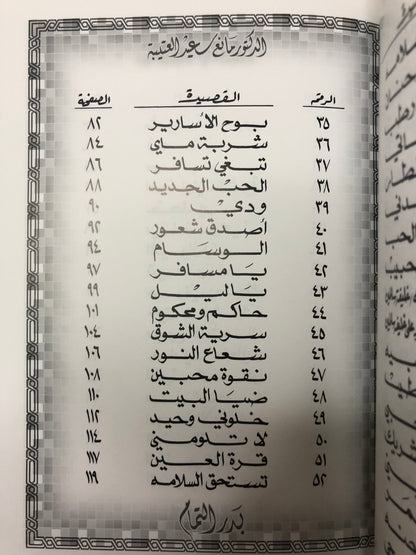 الدكتور مانع سعيد العتيبة
الرقم القصيدة الصفحة
٣٥ بوح الأسارير ٨٢
٣٦ شربة ماي ٨٤
٣٧ تبغي تسافر ٨٦
٣٨ الحب الجديد ٨٨
٣٩ ودي ٩٠
٤٠ أصدق شعور ٩٢
٤١ الوسام ٩٤
٤٢ يا مسافر ٩٧
٤٣ يا ليل ٩٩
٤٤ حاكم ومحكوم ١٠١
٤٥ سرية الشوق ١٠٤
٤٦ شعاع النور ١٠٦
٤٧ نقوة محبين ١٠٨
٤٨ ضيا البيت ١١٠
٤٩ خلوني وحيد ١١٢
٥٠ لا تلومني ١١٤
٥١ قرة العين ١١٧
٥٢ تستحق السلامه ١١٩
بدر التمام